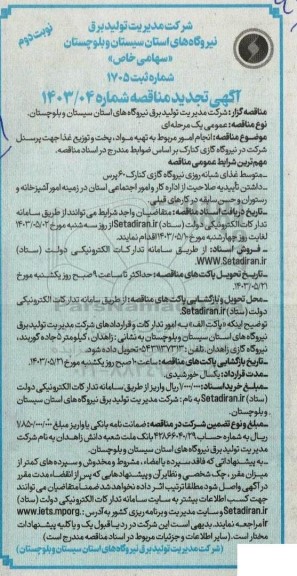 شرکت مدیریت تولید برق
نیروگاه های استان سیستان و بلوچستان
نوبت دوم
«سهامی خاص»
شماره ثبت ۱۷۰۵
آگهی تجدید مناقصه شماره ۱۴۰۳/۰۴
مناقصه گزار: شرکت مدیریت تولید برق نیروگاه های استان سیستان و بلوچستان.
نوع مناقصه: عمومی یک مرحله ای
موضوع مناقصه: انجام امور مربوط به تهیه مواد، پخت و توزیع غذا جهت پرسنل
شرکت در نیروگاه گازی کنارک بر اساس ضوابط مندرج در اسناد مناقصه.
مهم ترین شرایط عمومی مناقصه
_متوسط غذای شبانه روزی نیروگاه گازی کنارک ۶۰ پرس
_داشتن تأییدیه صلاحیت از اداره کار و امور اجتماعی استان در زمینه امور آشپزخانه و
رستوران و حسن سابقه در کارهای قبلی.
_تاریخ دریافت اسناد مناقصه: متقاضیان واجد شرایط می توانند از طریق سامانه
تدارکات الکترونیکی دولت (ستاد) Setadiran.ir از روز سه شنبه مورخ ۱۴۰۳/۰۵/۰۲
لغایت روز چهارشنبه مورخ ۱۴۰۳/۰۵/۱۰ اقدام نمایند.
_ فروش اسناد: از طریق سامانه تدارکات الکترونیکی دولت (ستاد)
WWW.Setadiran.ir.
_تاریخ تحویل پاکت های مناقصه: حداکثر تا ساعت ۹ صبح روز یکشنبه مورخ
۱۴۰۳/۰۵/۲۱.
_محل تحویل و بازگشایی پاکت های مناقصه: از طریق سامانه تدارکات الکترونیکی
دولت (ستاد) Setadiran.ir.
توضیح اینکه «پاکت الف» به امور تدارکات و قراردادهای شرکت مدیریت تولید برق
نیروگاه های استان سیستان و بلوچستان به نشانی: زاهدان، کیلومتر ۵ جاده کویند،
نیروگاه گازی زاهدان، تلفن: ۰۵۴۳۱۱۳۷۳۱۳ تحویل داده شود.
_تاریخ بازگشایی پاکت های مناقصه: ساعت صبح روز یکشنبه مورخ ۱۴۰۳/۰۵/۲۱.
_مدت قرارداد: یکسال خورشیدی.
_مبلغ خرید اسناد: ۷۰۰/۰۰۰ ریال واریز از طریق سامانه تدارکات الکترونیکی دولت
(ستاد) Setadiran.ir به نام: شرکت مدیریت تولید برق نیروگاه های استان سیستان
و بلوچستان.
_مبلغ و نوع تضمین شرکت در مناقصه: ضمانت نامه بانکی یا واریز مبلغ ۷۸۵/۰۰۰/۰۰۰
ریال به شماره حساب ۴۲۸۶۶۰۴۰۲۹ بانک ملت شعبه دانش زاهدان به نام شرکت
مدیریت تولید برق نیروگاه های استان سیستان و بلوچستان.
_به پیشنهاداتی که فاقد سپرده یا امضاء، مشروط و مخدوش و سپرده های کمتر از
میزان مقرر، چک شخصی و نظایر آن و پیشنهادهایی که پس از انقضاء مدت مقرر
در آگهی واصل شود مطلقا ترتیب اثر داده نخواهد شد ضمنا متقاضیان می توانند
جهت کسب اطلاعات بیشتر به سایت سامانه تدارکات الکترونیکی دولت (ستاد)
Setadiran.ir و سایت مدیریت و برنامه ریزی کشور به آدرس: www.iets.mporg.
ir مراجعه نمایند. بدیهی است این شرکت در رد یا قبول یک و یا کلیه پیشنهادات
مختار است. (سایر اطلاعات و جزئیات مربوط در اسناد مناقصه مندرج است)
(شرکت مدیریت تولید برق نیروگاه های استان سیستان و بلوچستان)